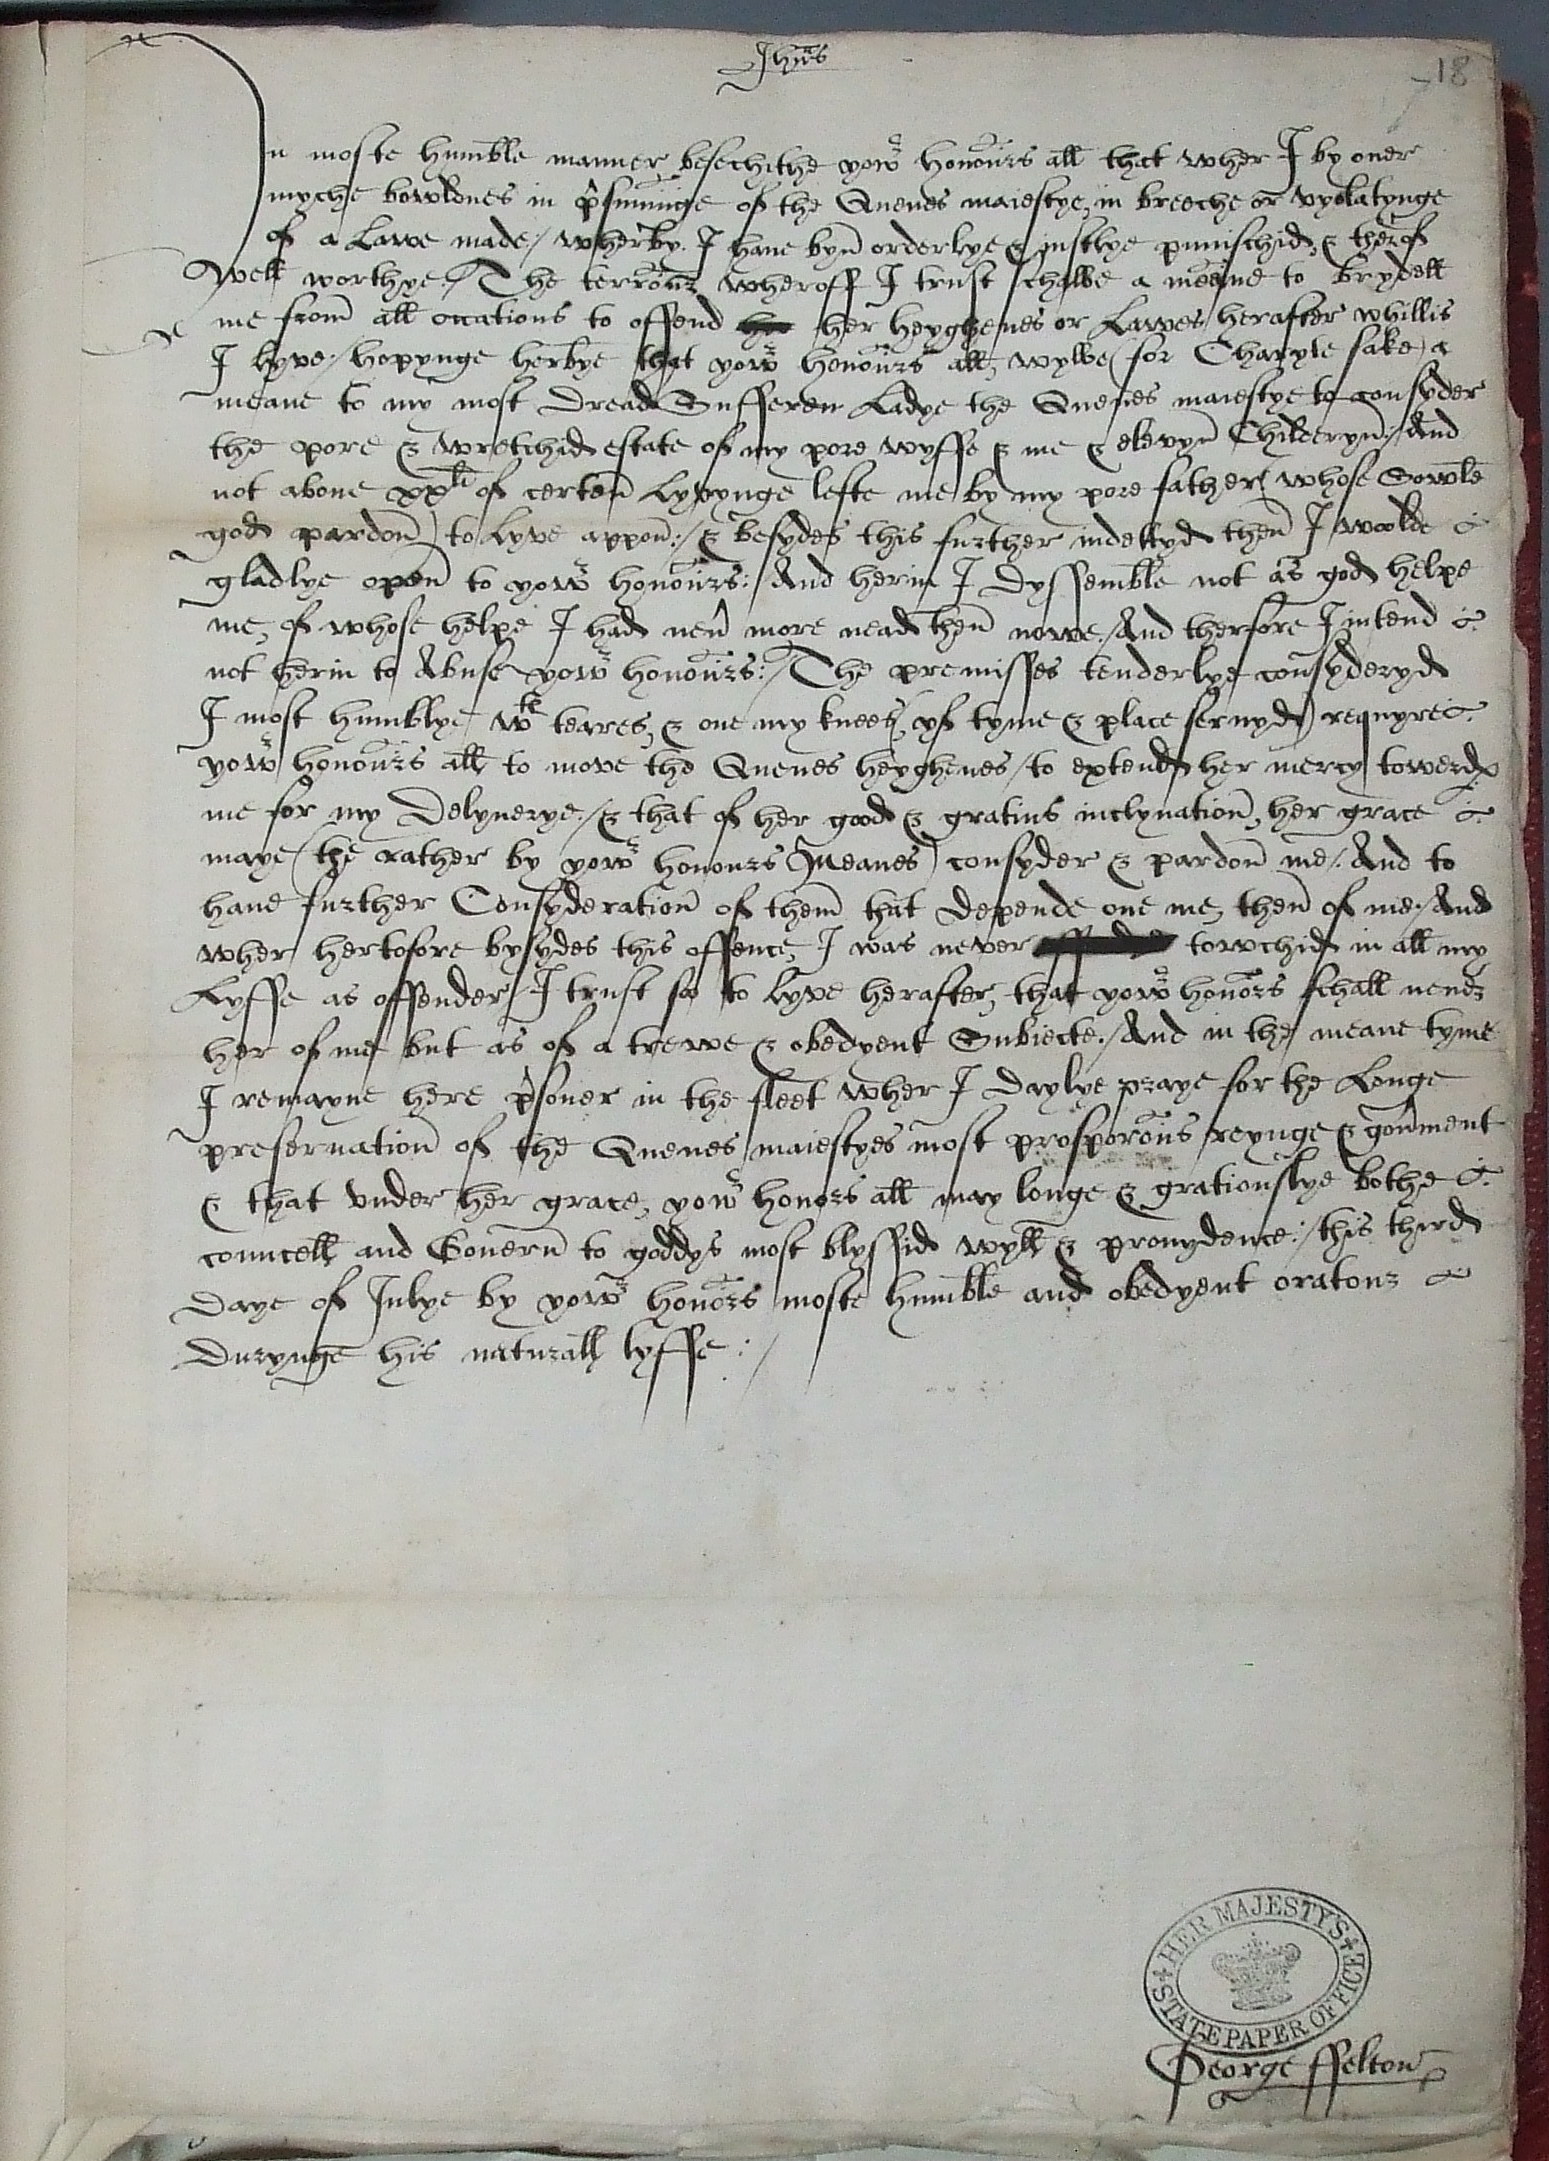 Jhūs
18
In moste humble manner besechithe yowr honours all that wher I by ouer
myche bowldnes in p̄suminge of the Quenes maiestye, in breeche or vyolatynge
of a Lawe made / wherby I haue byn orderlye & justlye punischid, & therof
well worthye / The terrour wheroff I trust schalbe a meane to brydell
me from all occations to offend her heyghenes or Lawes herafter whillis
I lyve / hopynge herbye that yowr honours all, wylbe (for Charyte sake) a
meane to my most dread Sufferen Ladye the Quenes maiestye to consyder
the pore & wretchid estate of my pore wyffe & me & elevyn Childeryn / And
not aboue xxli of certen Lyvynge lefte me by my pore father (whose Sowle
god pardon) to Lyve appon: / & besydes this further indettyd then I woolde
gladlye open to yowr honours: / And herin I dyssemble not as god helpe
me, of whose helpe I had neu̅ more nead then nowe / And therfore I intend
not herin to Abuse yowr honours: / The premisses tenderlye consyderyd
I most humblye wth teares, & one my knees (yf tyme & place seruyd) requyre
yowr honours all to move the Quenes heyghenes / to extend her mercy towerdes
me for my delyuerye / & that of her good & gratius inclynation, her grace
maye (the rather by yowr honours Meanes) consyder & pardon me / And to
haue further Consyderation of them that depende one me, then of me / And
wher hertofore bysydes this offence, I was never towchid in all my
Lyffe as offender / I trust so to lyve herafter, that yowr honors schall neuer
her of me but as of a trewe & obedyent Subiecte / And in the meane tyme
I remayne here p̄soner in the fleet wher I daylye praye for the Longe
preseruation of the Quenes maiestyes most prosporous reynge & gou̅ment
& that vnder her grace, yowr honors all may longe & gratiouslye bothe
councell and Gouern to goddys most blyssid wyll & prouydence: / this third
daye of Julye by yowr honors moste humble and obedyent oratour
durynge his naturall lyffe: /
HER MAJESTY'S STATE PAPER OFFICE
George ffelton